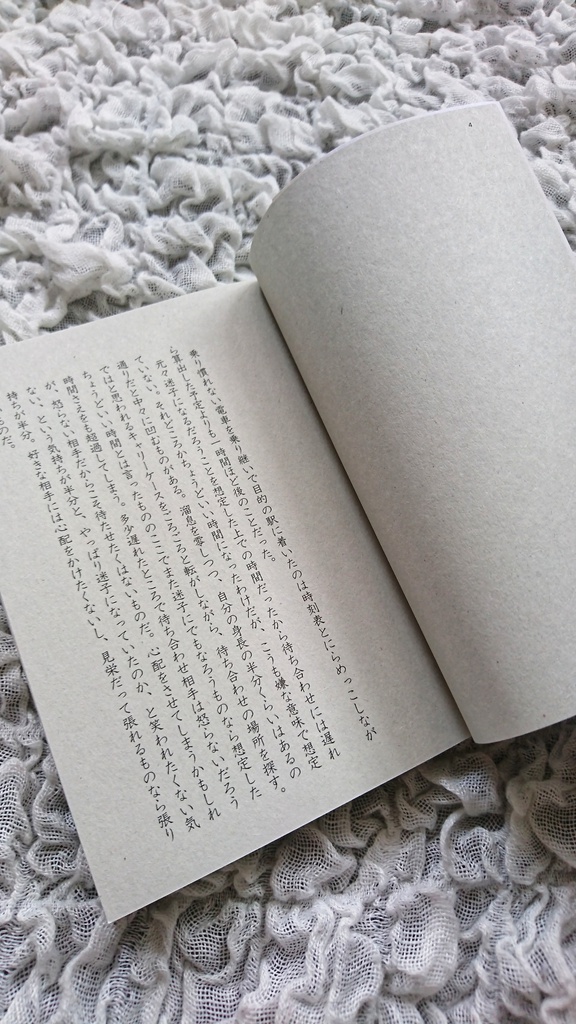 4
乗り慣れない電車を乗り継いで目的の駅に着いたのは時刻表とにらめっこしなが
ら算出した予定よりも一時間ほど後のことだった。
元々迷子になるだろうことを想定した上での時間だったから待ち合わせには遅れ
ていない。それどころかちょうどいい時間になったわけだが、こうも嫌な意味で想定
通りだと中々に凹むものがある。溜息を零しつつ、自分の身長の半分くらいはあるの
ではと思われるキャリーケースをごろごろと転がしながら、待ち合わせの場所を探す。
ちょうどいい時間とは言ったもののここでまた迷子にでもなろうものなら想定した
時間さえをも超過してしまう。多少遅れたところで待ち合わせ相手は怒らないだろう
が、怒らない相手だからこそ待たせたくはないものだ。心配をさせてしまうかもしれ
ない、という気持ちが半分と、やっぱり迷子になっていたのか、と笑われたくない気
持ちが半分。好きな相手には心配をかけたくないし、見栄だって張れるものなら張り
ものだ。